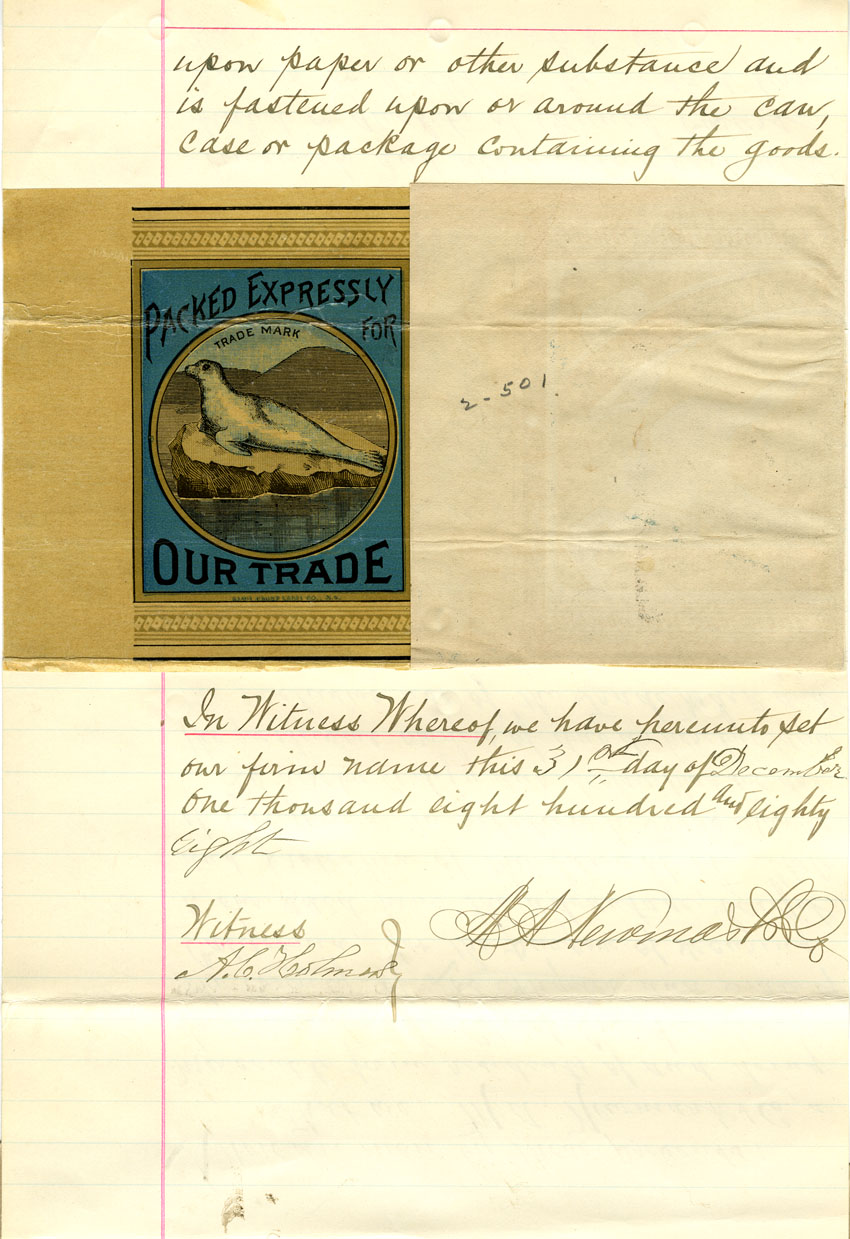 upon paper or other substance and
is fastened upon or around the can,
case or package containing the goods.
PACKED EXPRESSLY
FOR
TRADE MARK
OUR TRADE
2-501.
In Witness Whereof, we have hereunto set
our firm name this 31st day of December
One thousand eight hundred and eighty
eight
Witness
M A Newmark & Co
A.C. Holmes